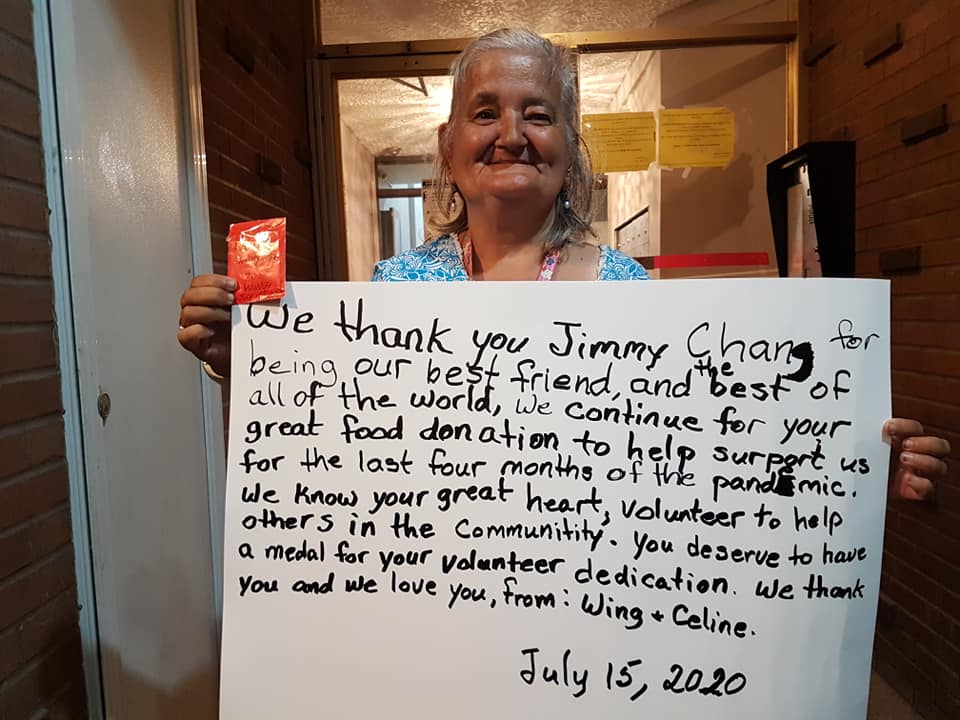 We thank you Jimmy Chang for
being our best friend, and the best of
all of the world, we continue for your
great food donation to help surpport us
for the last four months of the pandEmic.
We know your great heart, volunteer to help
others in the Communitity. you deserve to have
a medal for your volunteer dedication. We thank
you and we love you, from: Wing + Celine.
July 15, 2020